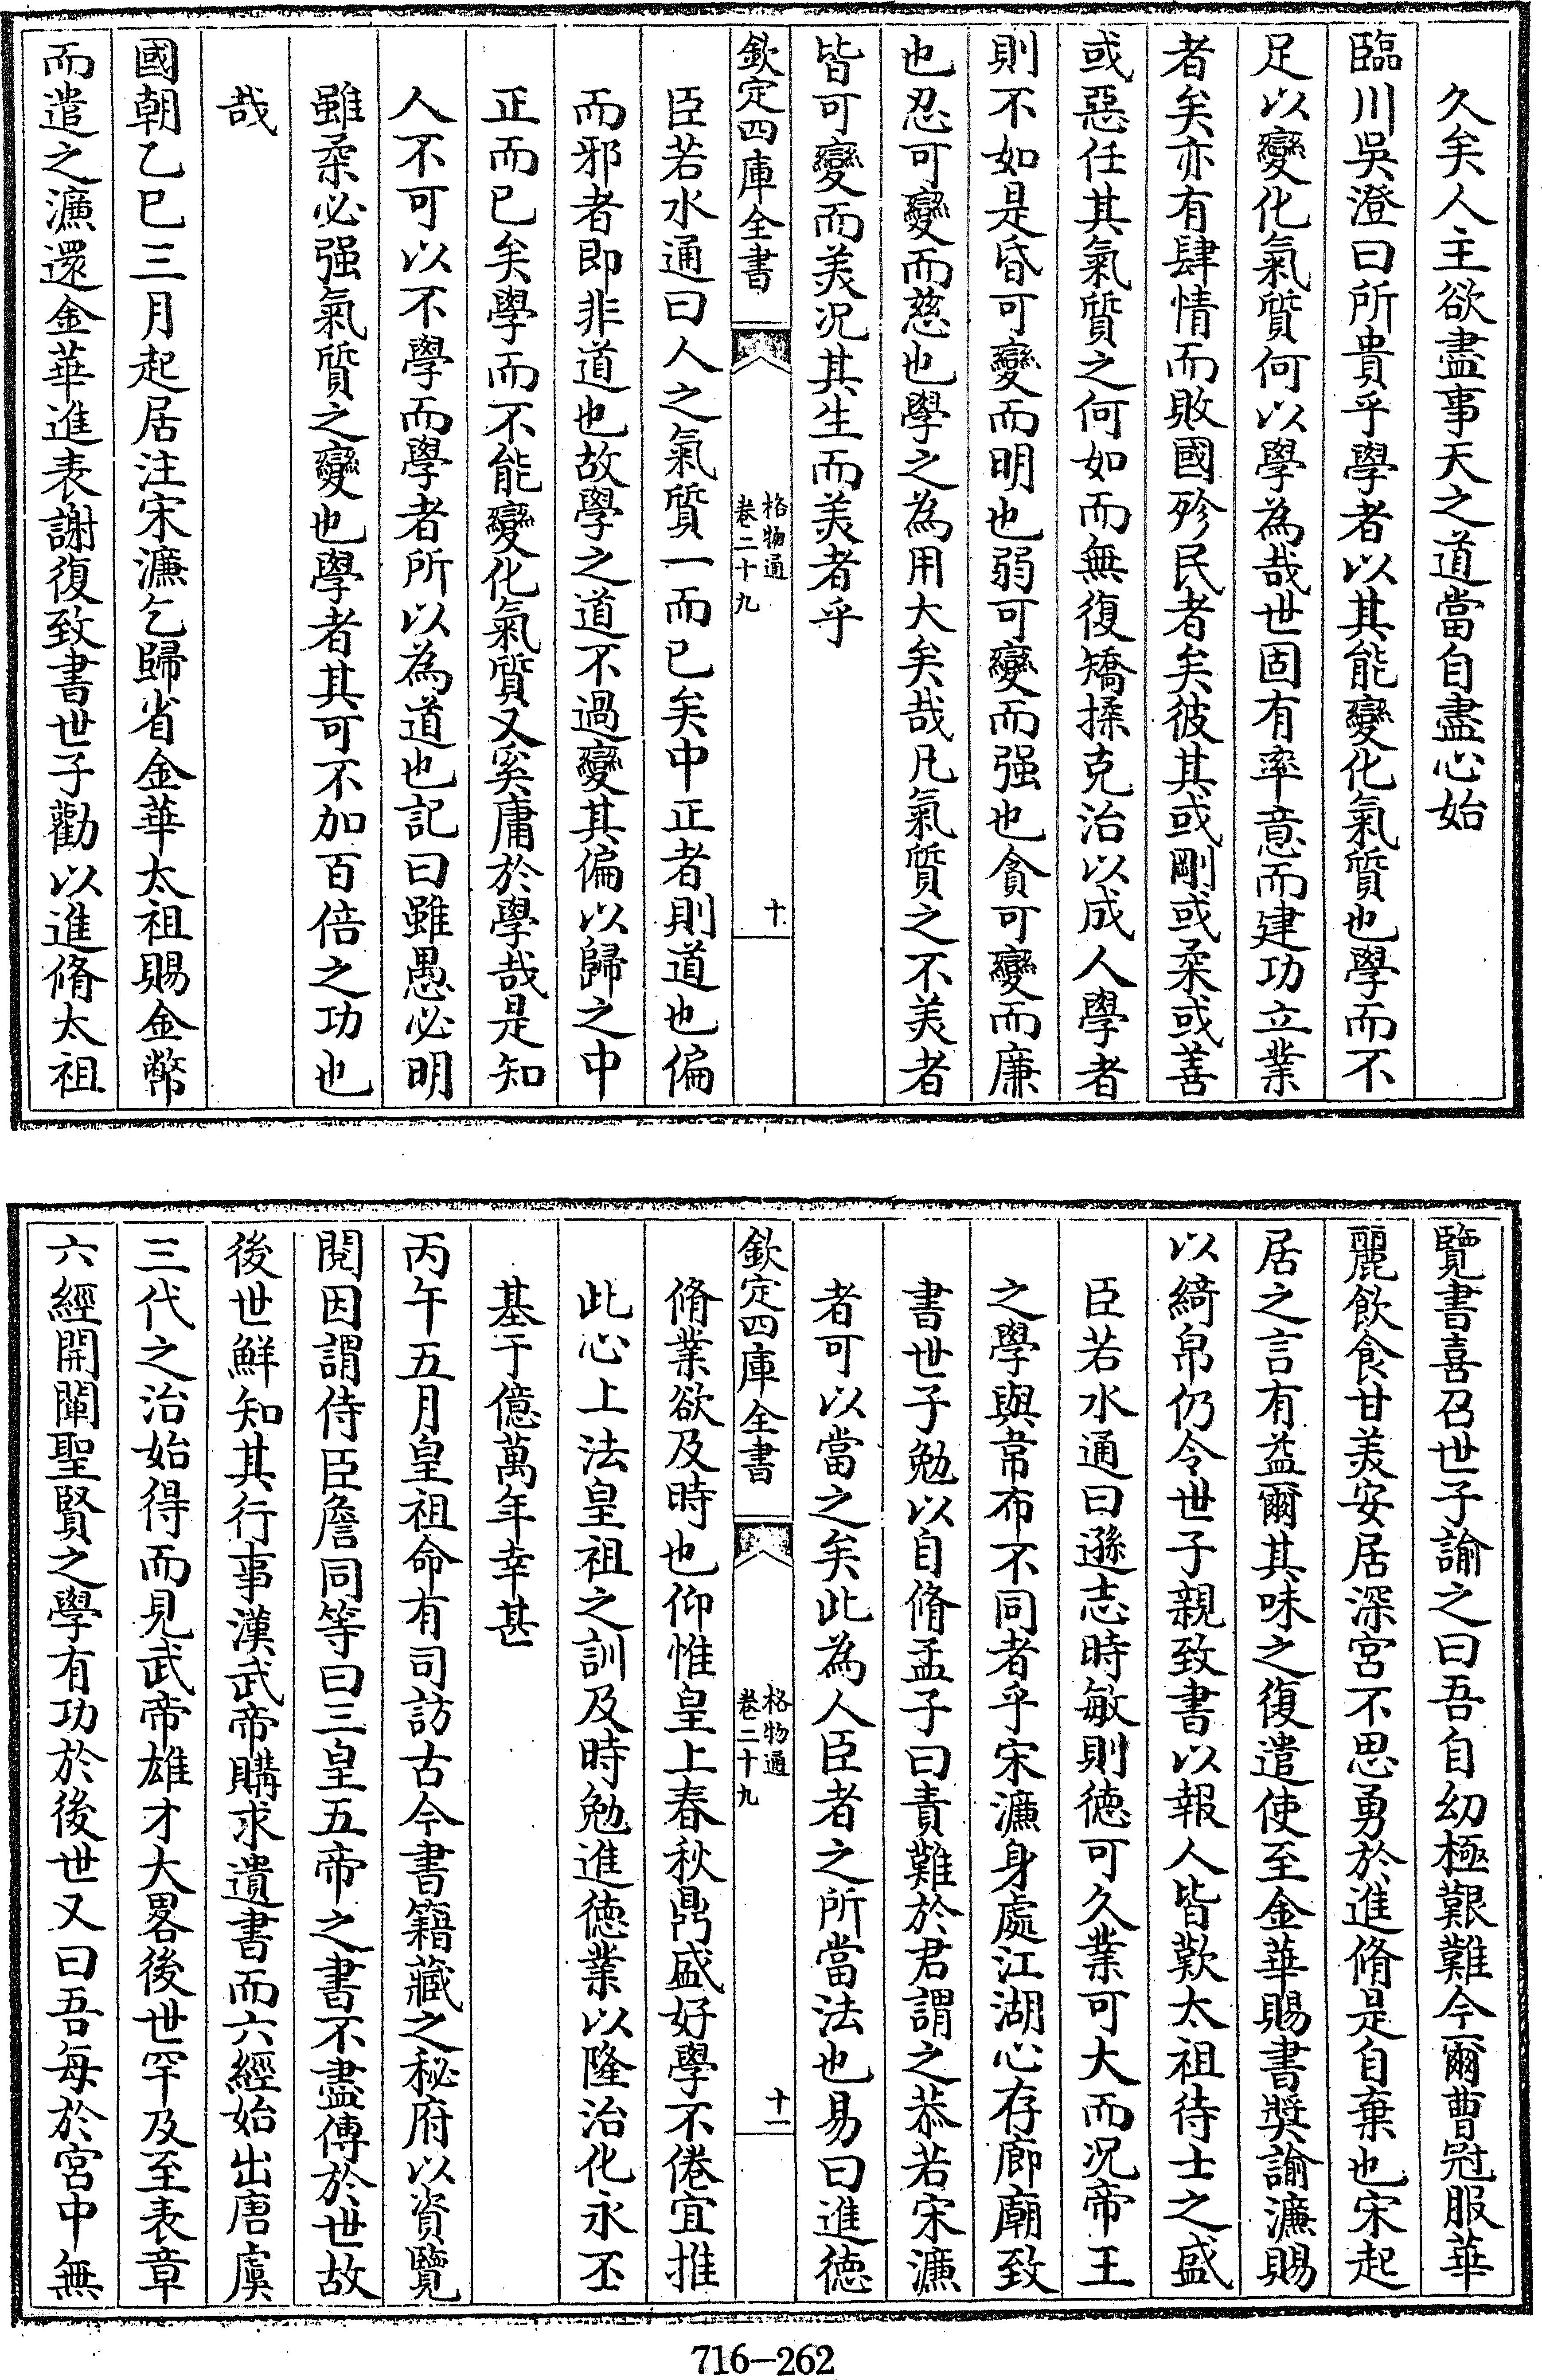 久矣人主欲盡事天之道當自盡心始
臨川吳澄曰所貴乎學者以其能變化氣質也學而不
足以變化氣質何以學為哉世固有率意而建功立業
者矣亦有肆情而敗國殄民者矣彼其或剛或柔或善
或惡任其氣質之何如而無復矯揉克治以成人學者
則不如是昏可變而明也弱可變而强也貪可變而廉
也忍可變而慈也學之為用大矣哉凡氣質之不美者
皆可變而美况其生而美者乎
欽定四庫全書
格物通
卷二十九
十
臣若水通曰人之氣質一而已矣中正者則道也偏
而邪者即非道也故學之道不過變其偏以歸之中
正而已矣學而不能變化氣質又奚庸於學哉是知
人不可以不學而學者所以為道也記曰雖愚必明
雖柔必强氣質之變也學者其可不加百倍之功也
哉
國朝乙巳三月起居注宋濂乞歸省金華太祖賜金幣
而遣之濂還金華進表謝復致書世子勸以進脩太祖
覽書喜召世子諭之曰吾自幼極艱難今爾曹冠服華
麗飲食甘美安居深宮不思勇於進脩是自棄也宋起
居之言有益爾其味之復遣使至金華賜書奬諭濂賜
以綺帛仍令世子親致書以報人皆歎太祖待士之盛
臣若水通曰遜志時敏則徳可久業可大而况帝王
之學與韋布不同者乎宋濂身處江湖心存廊廟致
書世子勉以自脩孟子曰責難於君謂之恭若宋濂
者可以當之矣此為人臣者之所當法也易曰進徳
欽定四庫全書
格物通
卷二十九
十一
脩業欲及時也仰惟皇上春秋鼎盛好學不倦宜推
此心上法皇祖之訓及時勉進徳業以隆治化永丕
基于億萬年幸甚
丙午五月皇祖命有司訪古今書籍藏之秘府以資覽
閱因謂侍臣詹同等曰三皇五帝之書不盡傳於世故
後世鮮知其行事漢武帝購求遺書而六經始出唐虞
三代之治始得而見武帝雄才大畧後世罕及至表章
六經開闡聖賢之學有功於後世又曰吾每於宮中無
716-262